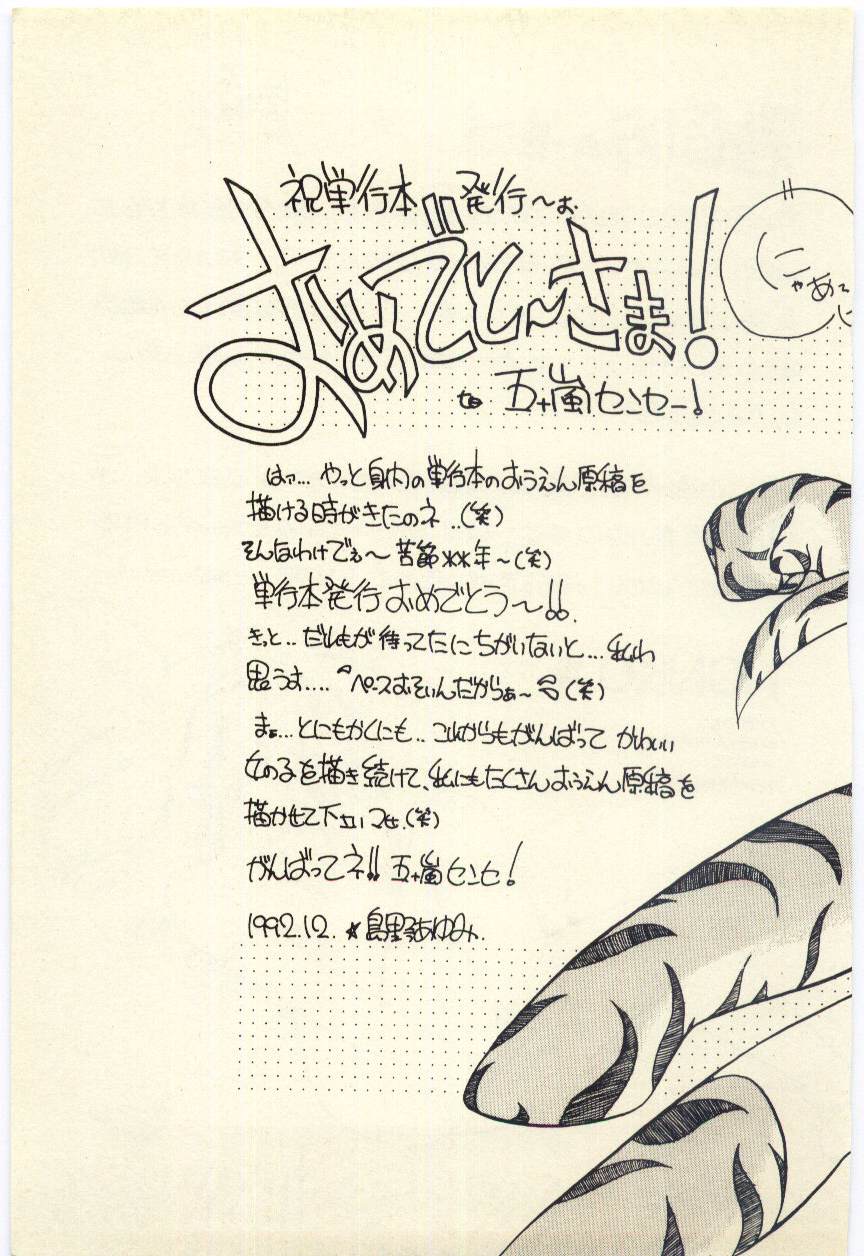 祝単行本 発行〜ぉ
おめでと〜さま!
to 五十嵐センセー!
にゃあ
はァ... やっと身内の単行本のおうえん原稿を
描ける時がきたのネ..(笑)
そんなわけでぇ〜 苦節**年〜(笑)
単行本発行おめでとう〜!!
きっと..だれもが待ってたにちがいないと...私わ
思うす.... ペースおそいんだからぁ〜(笑)
まぁ...とにもかくにも..これからもがんばって かわいい
女の子を描き続けて、私にもたくさんおうえん原稿を
描かせて下さいませ.(笑)
がんばってネ!! 五十嵐センセ!
1992.12. ☆島野あゆみ.